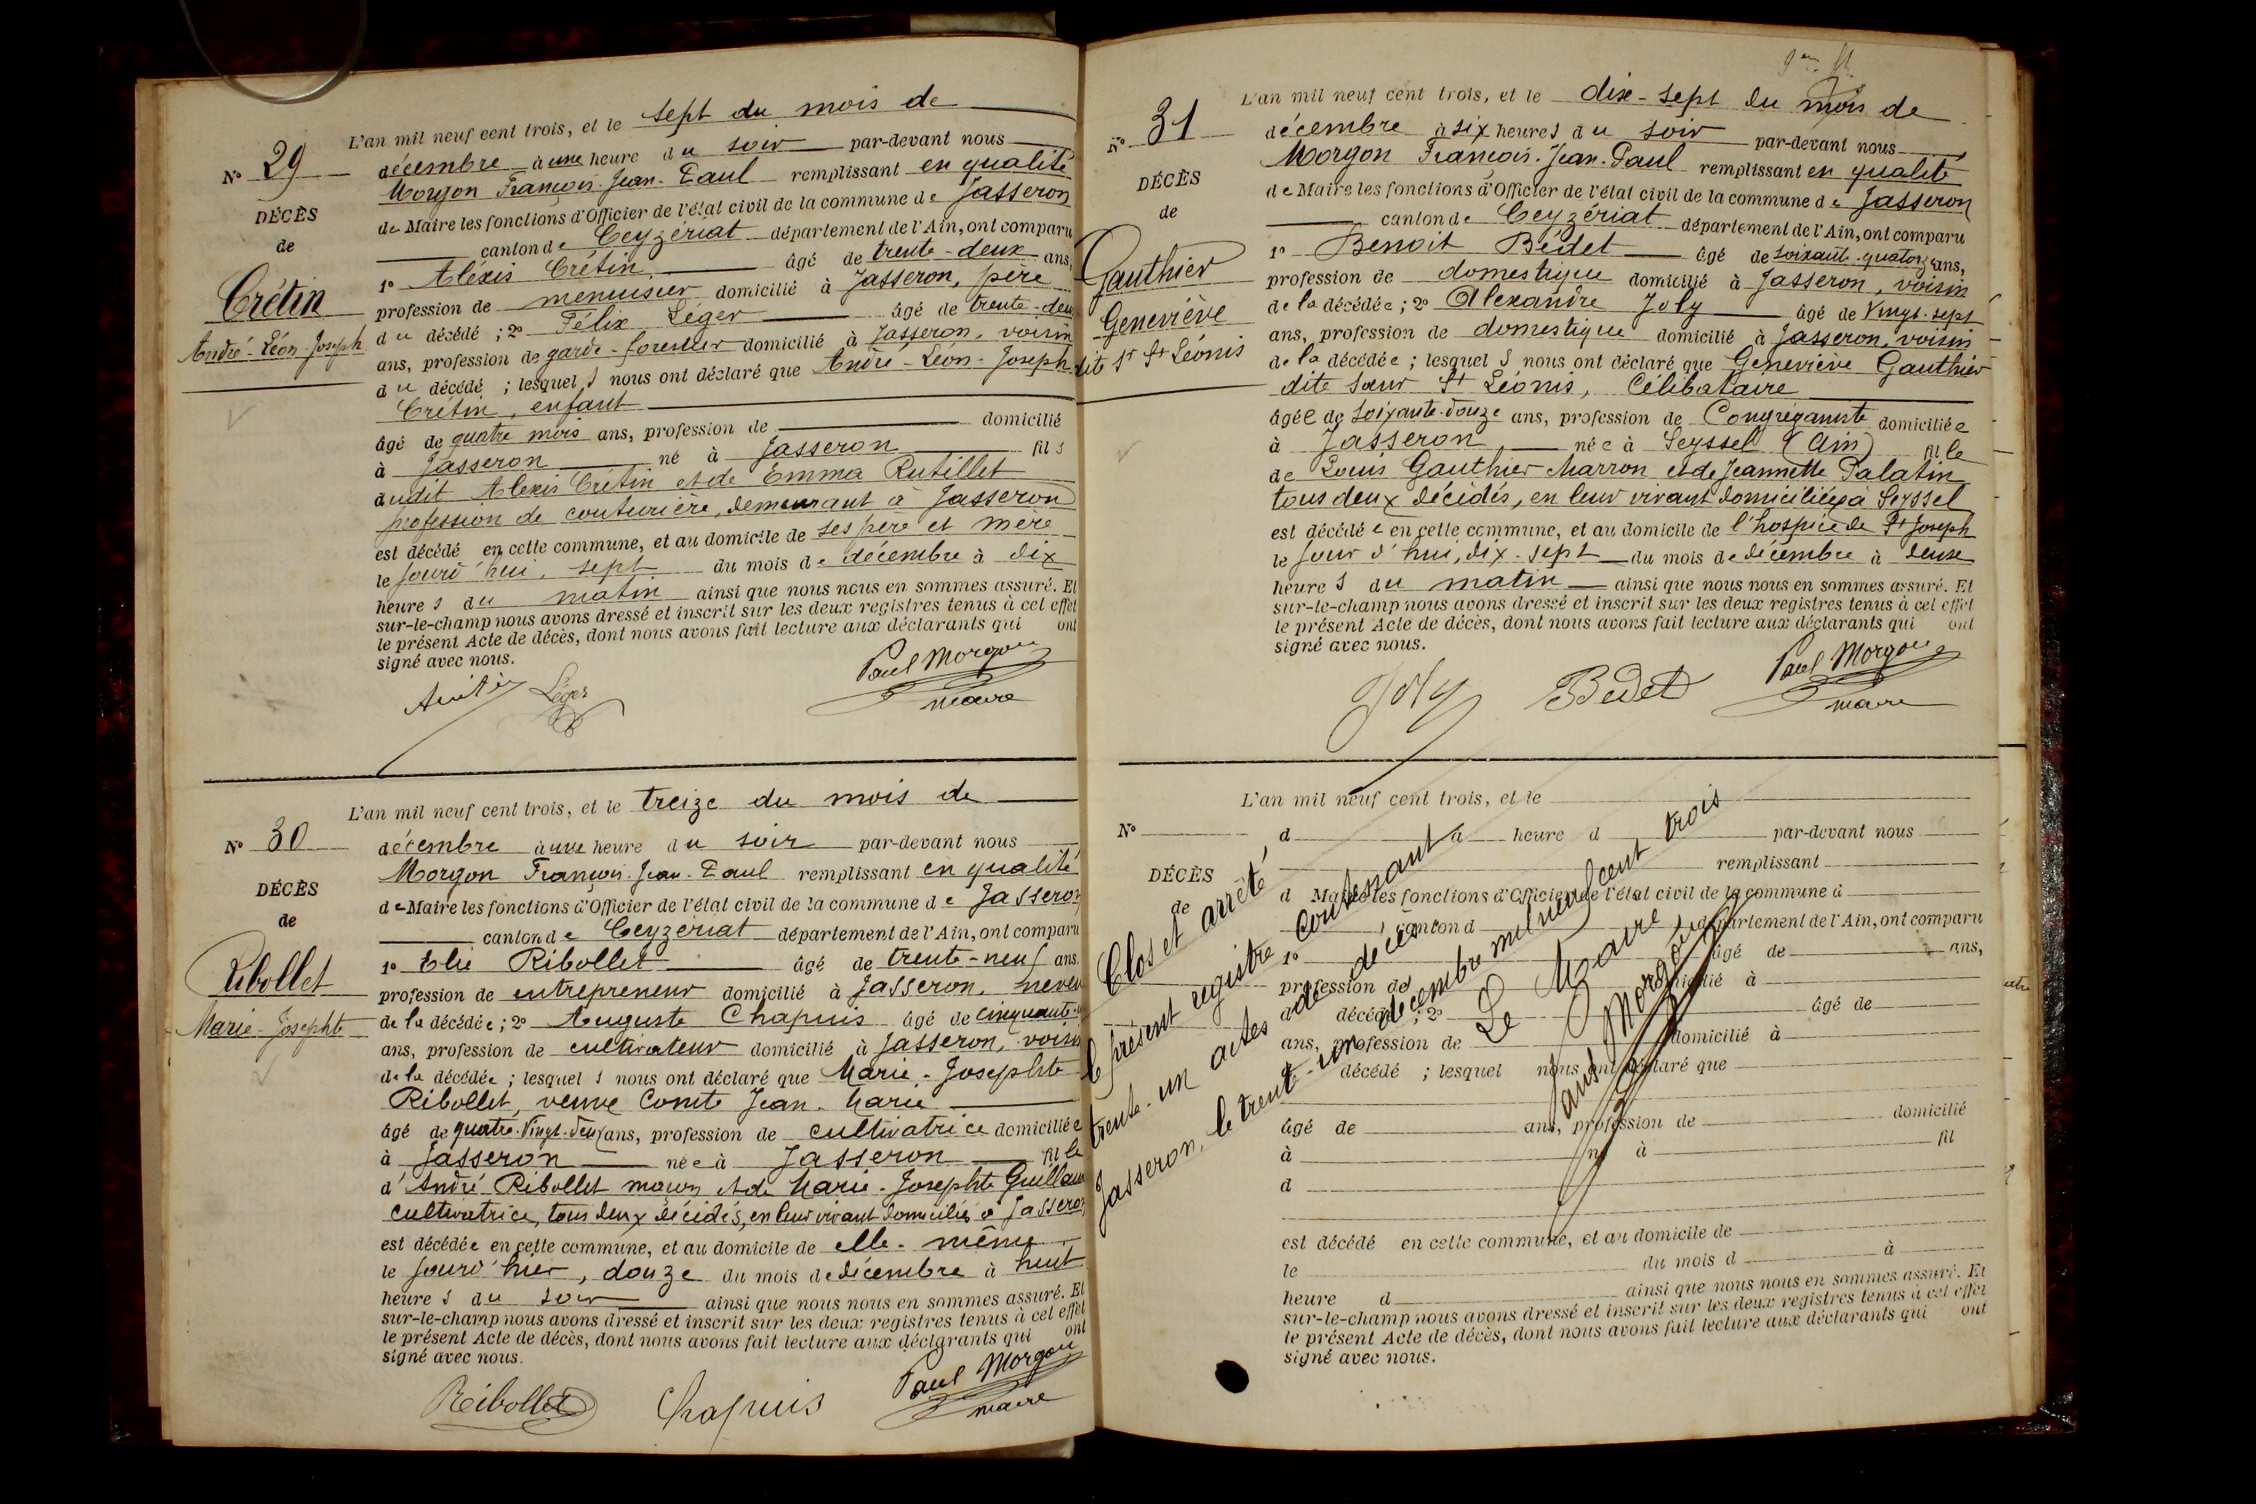 L'an mil neuf cent trois, et le sept du mois de
N° 29
décembre à une heure du soir par-devant nous
Morgon François-Jean-Paul remplissant en qualité
DÉCÈS
de Maire les fonctions d'Officier de l'état civil de la commune de Jasseron
de
canton de Ceyzériat département de l'Ain, ont comparu
1° Aléxis Crétin âgé de trente-deux ans,
Crétin
profession de menuisier domicilié à Jasseron, père
André-Léon-Joseph
du décédé ; 2° Félix Léger âgé de trente-deux
ans, profession de garde-forestier domicilié à Jasseron, voisin
du décédé ; lesquels nous ont déclaré que André-Léon-Joseph
Crétin, enfant
âgé de quatre mois ans, profession de domicilié
à Jasseron né à Jasseron fils
dudit Alexis Crétin et de Emma Rutillet
profession de couturière, demeurant à Jasseron
est décédé en cette commune, et au domicile de ses père et mère
le jourd'hui, sept du mois de décembre à dix
heures du matin ainsi que nous nous en sommes assuré. Et
sur-le-champ nous avons dressé et inscrit sur les deux registres tenus à cet effet
le présent Acte de décès, dont nous avons fait lecture aux déclarants qui ont
signé avec nous.
Léger Paul Morgon
maire
L'an mil neuf cent trois, et le treize du mois de
N° 30
décembre à une heure du soir par-devant nous
Morgon François-Jean-Paul remplissant en qualité
DÉCÈS
de Maire les fonctions d'Officier de l'état civil de la commune de Jasseron
de
canton de Ceyzériat département de l'Ain, ont comparu
1° Elie Ribollet âgé de trente-neuf ans.
Ribollet
profession de entrepreneur domicilié à Jasseron, neveu
Marie-Josephte
de la décédée ; 2° Auguste Chapuis âgé de cinquante-
ans, profession de cultivateur domicilié à Jasseron, voisin
de la décédée ; lesquels nous ont déclaré que Marie-Josephte
Ribollet, veuve Comte Jean-Marie
âgé de quatre-vingt-deux ans, profession de cultivatrice domiciliée
à Jasseron née à Jasseron fille
d'André Ribollet maçon et de Marie-Josephte Guillau
cultivatrice, tous deux décédés, en leur vivant domiciliés à Jasseron
est décédée en cette commune, et au domicile de elle-même
le jourd'hier, douze du mois de décembre à huit
heures du soir ainsi que nous nous en sommes assuré. Et
sur-le-champ nous avons dressé et inscrit sur les deux registres tenus à cet effet
le présent Acte de décès, dont nous avons fait lecture aux déclarants qui ont
signé avec nous.
Ribollet Chapuis Paul Morgon
maire
L'an mil neuf cent trois, et le dix-sept du mois de
N° 31
décembre à six heures du soir par-devant nous
Morgon François-Jean-Paul remplissant en qualité
DÉCÈS
de Maire les fonctions d'Officier de l'état civil de la commune de Jasseron
de
canton de Ceyzériat département de l'Ain, ont comparu
1° Benoit Bédet âgé de soixante-quatorze ans,
Gauthier
profession de domestique domicilié à Jasseron, voisin
Geneviève
de la décédée ; 2° Alexandre Joly âgé de vingt-sept
dite Sr St Léonis
ans, profession de domestique domicilié à Jasseron, voisin
de la décédée ; lesquels nous ont déclaré que Geneviève Gauthier
dite sœur St Léonis, Célibataire
âgée de soixante-douze ans, profession de Congréganiste domiciliée
à Jasseron née à Seyssel (Ain) fille
de Louis Gauthier Marron et de Jeannette Palatin
tous deux décédés, en leur vivant domiciliés à Seyssel
est décédée en cette commune, et au domicile de l'hospice de St Joseph
le jourd'hui, dix-sept du mois de décembre à deux
heures du matin ainsi que nous nous en sommes assuré. Et
sur-le-champ nous avons dressé et inscrit sur les deux registres tenus à cet effet
le présent Acte de décès, dont nous avons fait lecture aux déclarants qui ont
signé avec nous.
Joly Bedet Paul Morgon
maire
L'an mil neuf cent trois, et le
N°
d à heure d par-devant nous
remplissant
DÉCÈS
d Maire les fonctions d'Officier de l'état civil de la commune d
de
canton d département de l'Ain, ont comparu
1° âgé de ans,
profession de domicilié à
d décédé ; 2° âgé de
ans, profession de domicilié à
d décédé ; lesquel nous ont déclaré que
âgé de ans, profession de domicilié
à né à fil
d
est décédé en cette commune, et au domicile de
le du mois d à
heure d ainsi que nous nous en sommes assuré. Et
sur-le-champ nous avons dressé et inscrit sur les deux registres tenus à cet effet
le présent Acte de décès, dont nous avons fait lecture aux déclarants qui ont
signé avec nous.
Clos et arrêté,
le présent registre contenant
trente-un actes de décès
Jasseron, le trente-un décembre mil neuf cent trois
Le Maire
Paul Morgon